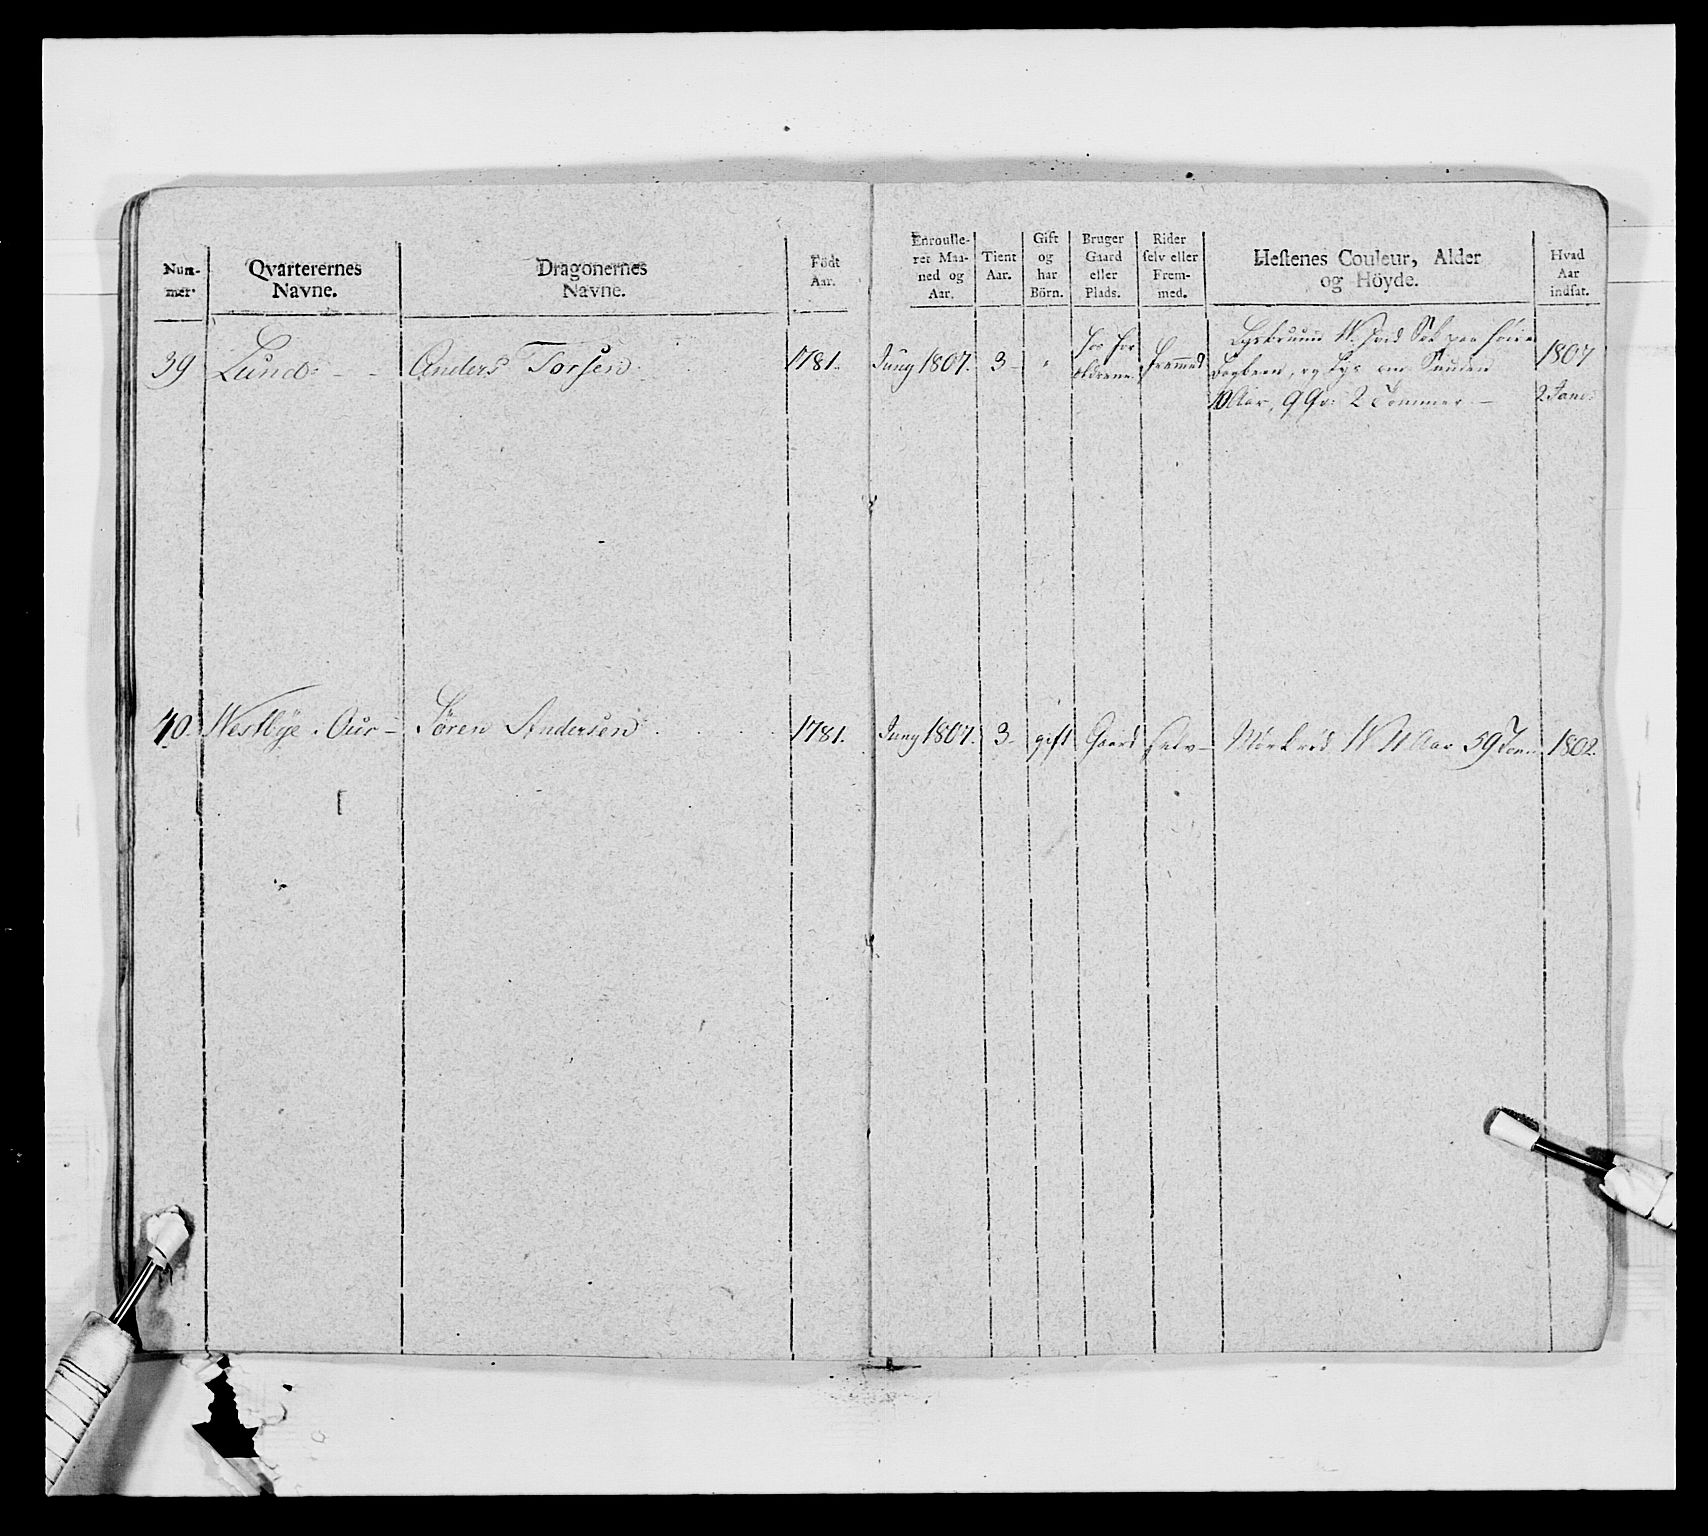 Num-
mer.
Qvarterernes
Navne.
Dragonernes
Navne.
Födt
Aar.
Enroulle-
ret Maa-
ned og
Aar.
Tient
Aar.
Gift
og
har
Börn.
Bruger
Gaard
eller
Plads.
Rider
selv eller
Frem-
med.
Hestenes Couleur, Alder
og Höyde.
Hvad
Aar
indsat.
39 Lund. Anders Torsen 1781. Juny 1807. 3 " hos For
ældrene fremmed
Lysbruun V. hvid paa høire
Bagbeen, og
10 Aar, 9 Qv: 2 Tommer
1807
40. Westbye i Our Sören Andersen 1781. Juny 1807. 3 gift Gaard selv Mörkröd V 11 Aar 59 Tom: 1802.